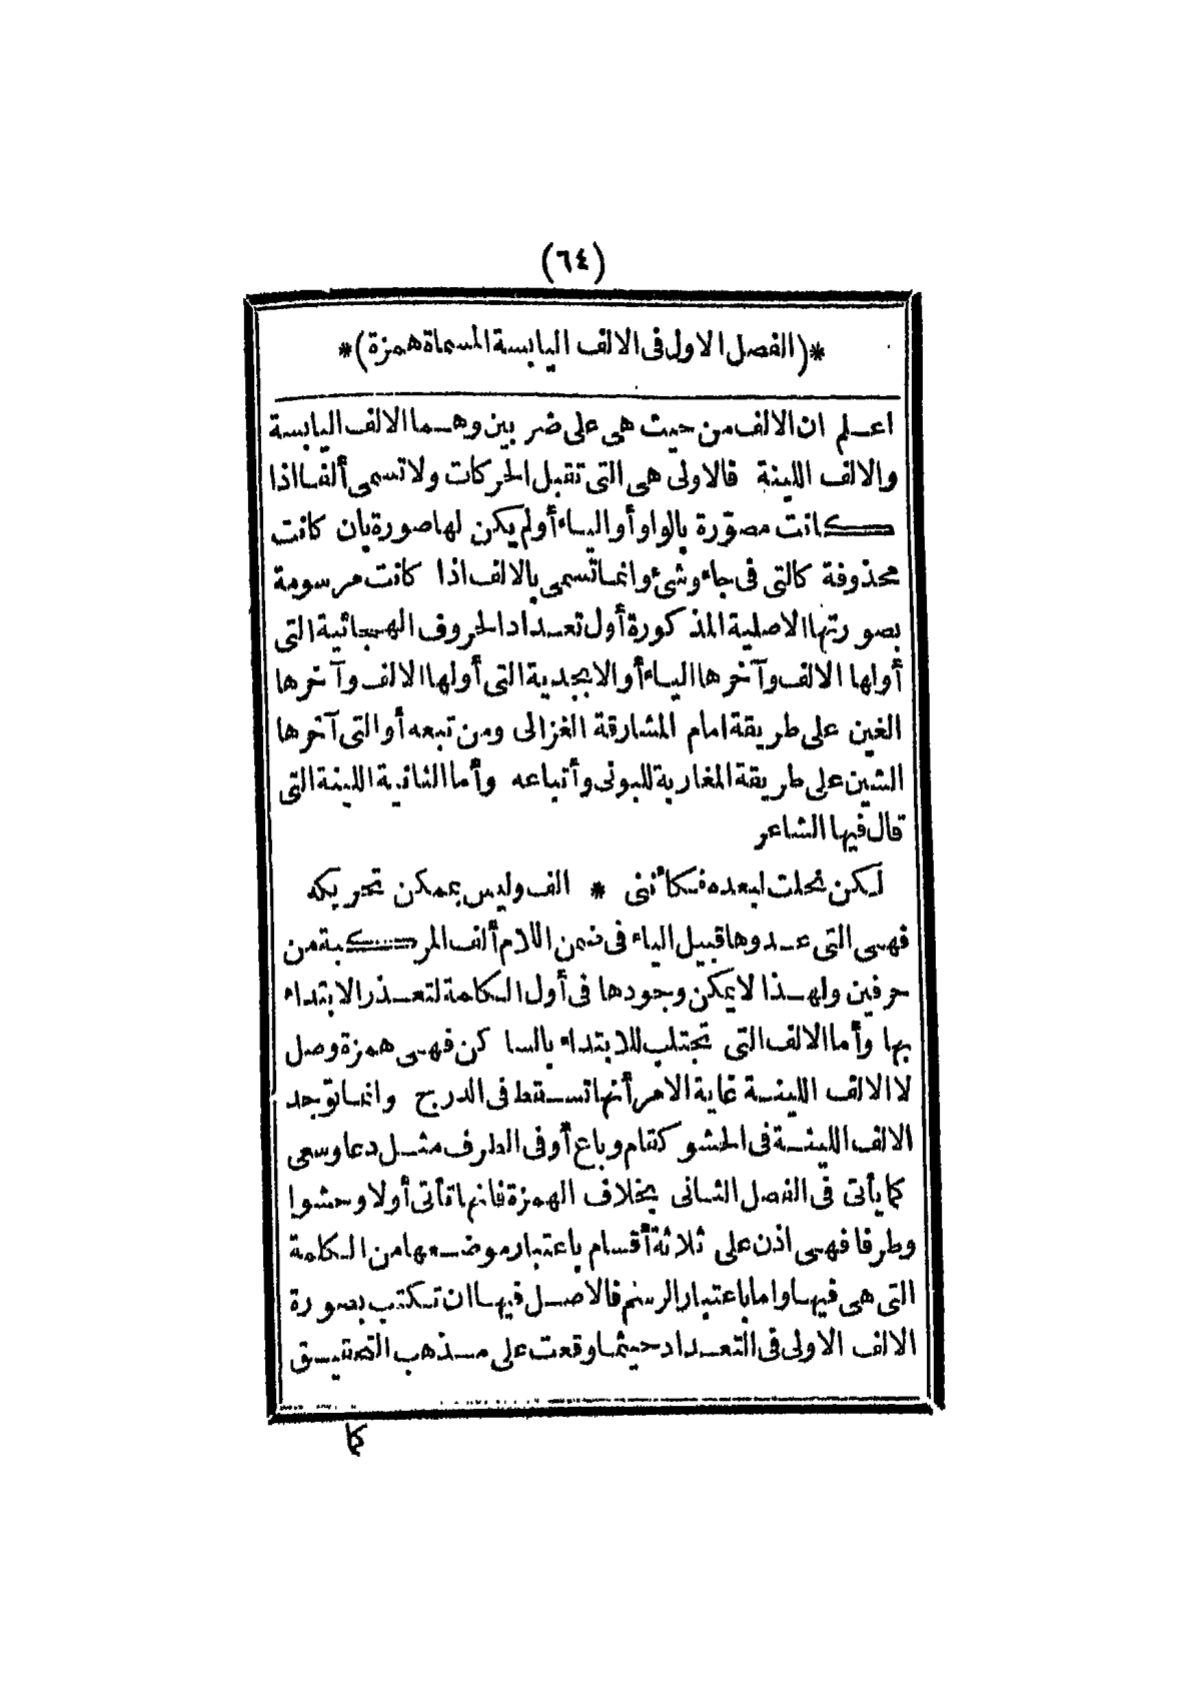 (٦٤)
*(الفصل الاول فى الالف اليابسة المسماة همزة)*
اعلم ان الالف من حيث هى على ضربين وهما الالف اليابسة
والالف اللينة فالاولى هى التى تقبل الحركات ولا تسمى ألفا اذا
كانت مصوّرة بالواو أو الياء أو لم يكن لها صورة بان كانت
محذوفة كالتى فى جاء وشئ وانما تسمى بالالف اذا كانت مرسومة
بصورتها الاصلية المذكورة أول تعداد الحروف الهجائية التى
أولها الالف وآخرها الياء أو الابجدية التى أولها الالف وآخرها
الغين على طريقة امام المشارقة الغزالى ومن تبعه أو التى آخرها
الشين على طريقة المغاربة للبونى وأتباعه وأما الثانية اللينة التى
قال فيها الشاعر
لكن نحلت لبعده فكأننى * الف وليس بممكن تحريكه
فهى التى عدوها قبيل الياء فى ضمن اللام ألف المركبة من
حرفين ولهذا لا يمكن وجودها فى أول الكلمة لتعذر الابتداء
بها وأما الالف التى تجتلب للابتداء بالساكن فهى همزة وصل
لا الالف اللينة غاية الامر أنها تسقط فى الدرج وانما توجد
الالف اللينة فى الحشو كقام وباع أو فى الطرف مثل دعا وسعى
كما يأتى فى الفصل الثانى بخلاف الهمزة فانها تأتى أولا وحشوا
وطرفا فهى اذن على ثلاثة أقسام باعتبار موضعها من الكلمة
التى هى فيها واما باعتبار الرسم فالاصل فيها ان تكتب بصورة
الالف الاولى فى التعداد حيثما وقعت على مذهب التحقيق
كما